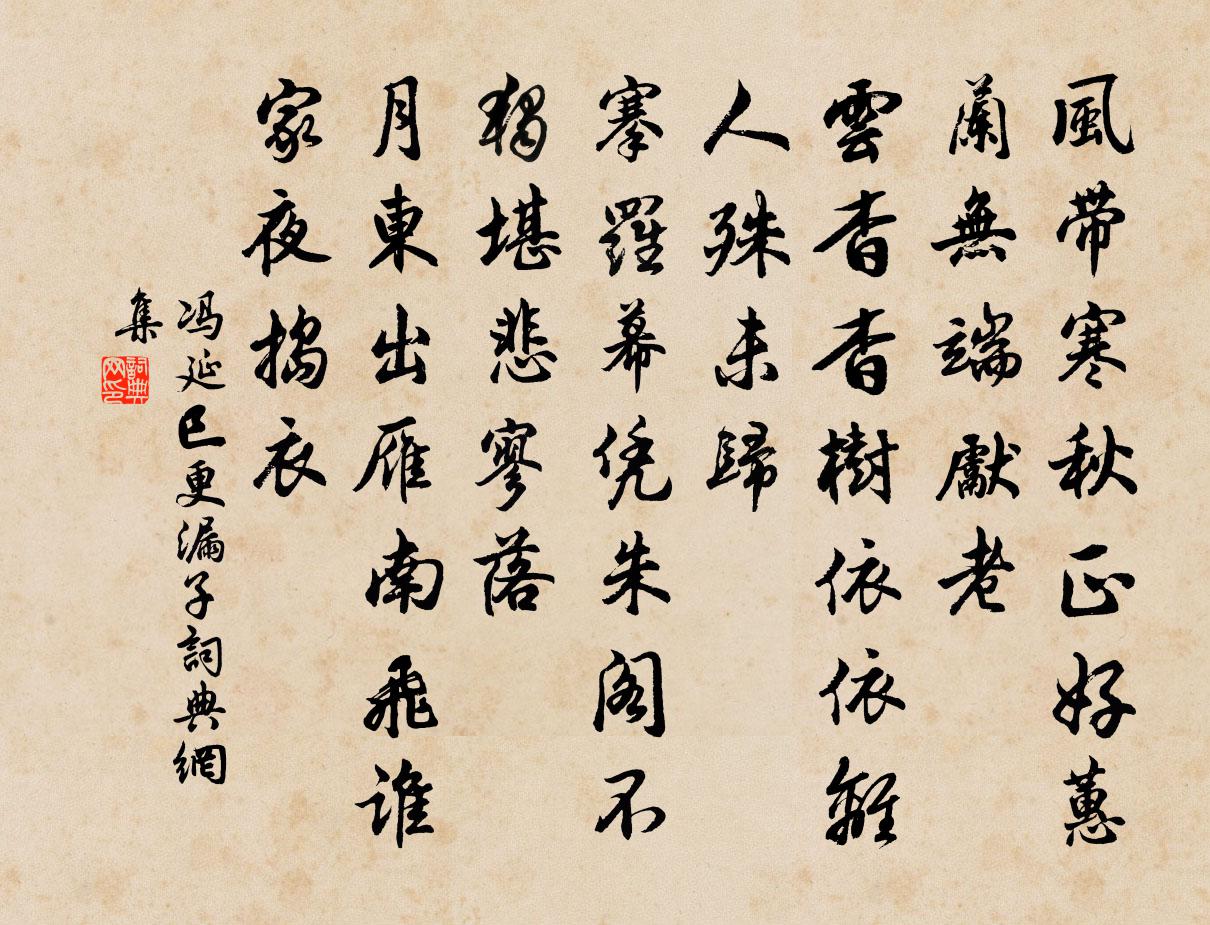 風帶寒秋正好蕙
蘭無端獻老
雲杳杳樹依依離
人殊未歸
搴羅幕凭朱閣不
獨堪悲寥落
月東出雁南飛誰
家夜搗衣
冯延巳更漏子詞典網
集
詞典
网印